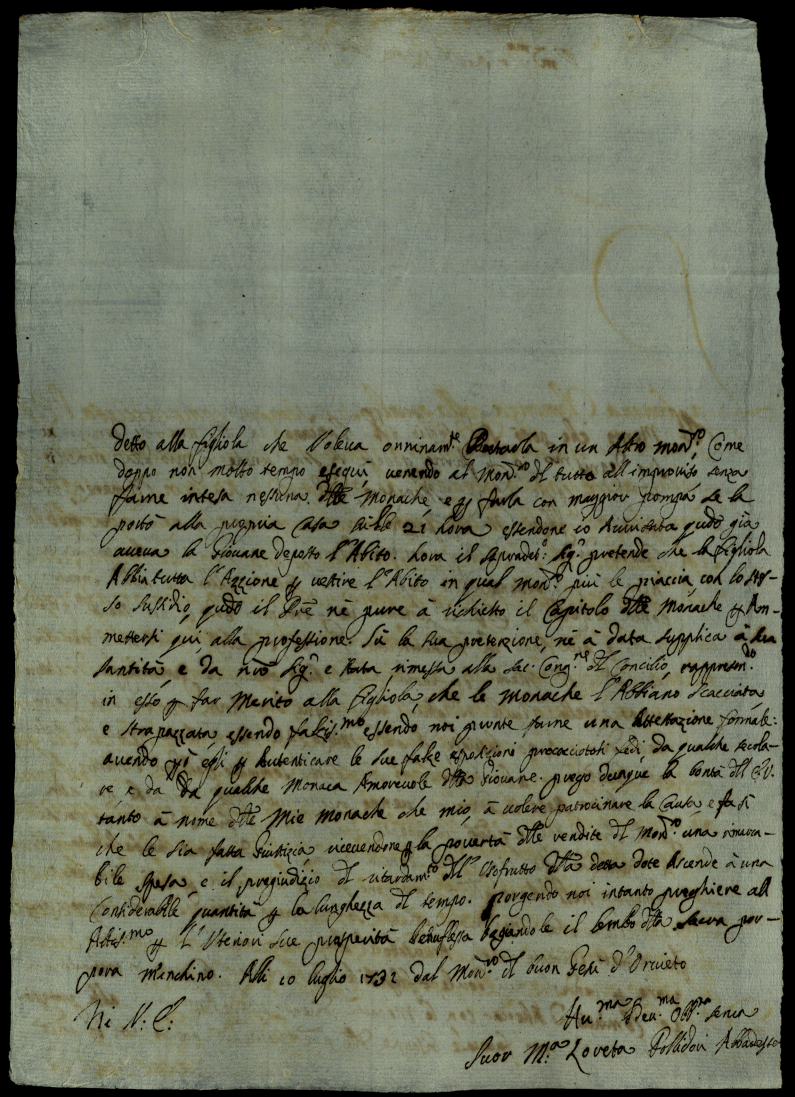 detto alla figliola che voleva onninam.te Portarla in un Altro mon.ro, Come
doppo non molto tempo eseguì, venendo al Mon.ro del tutto all'improviso senza
farne intesa nessuna delle Monache, e p farla con maggior pompa se la
portò alla propria Casa sulle 21 hora essendone io Avvisata qudo già
aveva la Giovane deposto l'Abito. hora il sopradet.o Sig.r pretende che la figliola
Abbia tutta l'Azzione p vestire l'Abito in qual mon.ro più le piaccia, con lo stes-
so sussidio, qudo il Pre nè pure à richiesto il Capitolo delle Monache p Am-
mettersi qui alla professione. Sù la sua pretenzione, ne à data supplica à sua
santità, e da nro Sig.r è stata rimessa alla Sac. Cong.ne del Concilio, rappresen.do
in esso p far Merito alla figliola, che le Monache l'Abbiano scacciata,
e strapazzata, essendo falsis.mo essendo noi pronte farne una Attestazione formale:
avendo pò egli p Autenticare le sue false esposizioni procacciatosi fedi, da qualche secola-
re, e da qualche Monaca Amorevole della Giovane. prego dunque la bontà dell' E.V.
tanto à nome delle Mie Monache che mio, à volere patrocinare la Causa e fa sì
che le sia fatta Giustizia, ricevendone p la povertà delle rendite del Mon.ro una rimarca-
bile spesa, e il pregiudizio del ritardam.to dell' Usofrutto della detta dote Ascende à una
Considerabile quantità p la lunghezza del tempo. porgendo noi intanto preghiere all
Altis.mo p l'Ulteriori sue prosperità Genuflessa bagiandole il lembo della sacra por-
pora M'inchino. Alli 10 luglio 1732 dal Mon.ro del buon Gesù d'Orvieto
Di V: E:
Hu.ma Dev.ma Obb.ma serva
Suor M.a Loreta Pollidori Abbadessa